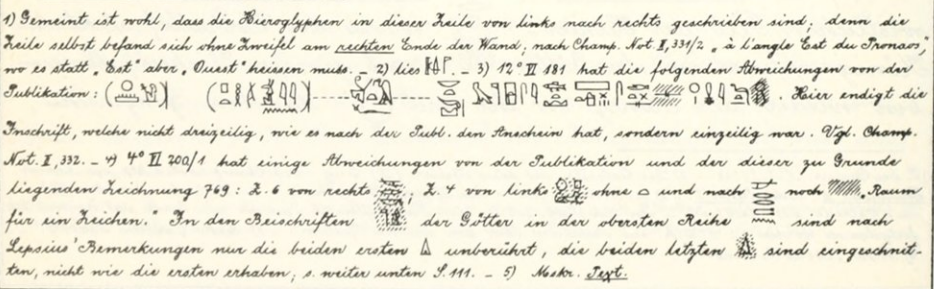 1) Gemeint ist wohl, dass die Hieroglyphen in dieser Zeile von links nach rechts geschrieben sind; denn die
Zeile selbst befand sich ohne Zweifel am rechten Ende der Wand; nach Champ. Not. II, 331/2 „à l'angle Est du Pronaos,"
wo es statt „Est" aber „Ouest" heissen muss. – 2) lies . – 3) 12° VI 181 hat die folgenden Abweichungen von der
Publikation: . Hier endigt die
Inschrift, welche nicht dreizeilig, wie es nach der Publ. den Anschein hat, sondern einzeilig war. Vgl. Champ.
Not. II, 332. – 4) 4° VI 200/1 hat einige Abweichungen von der Publikation und der dieser zu Grunde
liegenden Zeichnung 769: Z. 6 von rechts ; Z. 4 von links ohne und nach noch „Raum
für ein Zeichen." In den Beischriften der Götter in der obersten Reihe sind nach
Lepsius' Bemerkungen nur die beiden ersten unberührt, die beiden letzten sind eingeschnit-
ten, nicht wie die ersten erhaben; s. weiter unten S. 111. – 5) Mskr. Text.